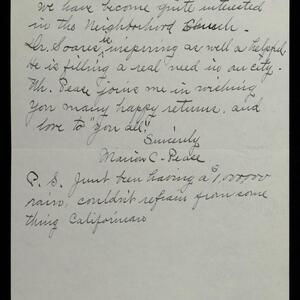 we have become quite interested
in the Neighborhood Church.
Dr. Soares is inspiring as well a helpful,
he is filling a real need in our city.
Mr. Pease joins me in wishing
you many happy returns, and
love to "you all".
Sincerely
Marion C. Pease
P. S. Just been having a $1,000,000
rain, couldn't refrain from some
thing Californian